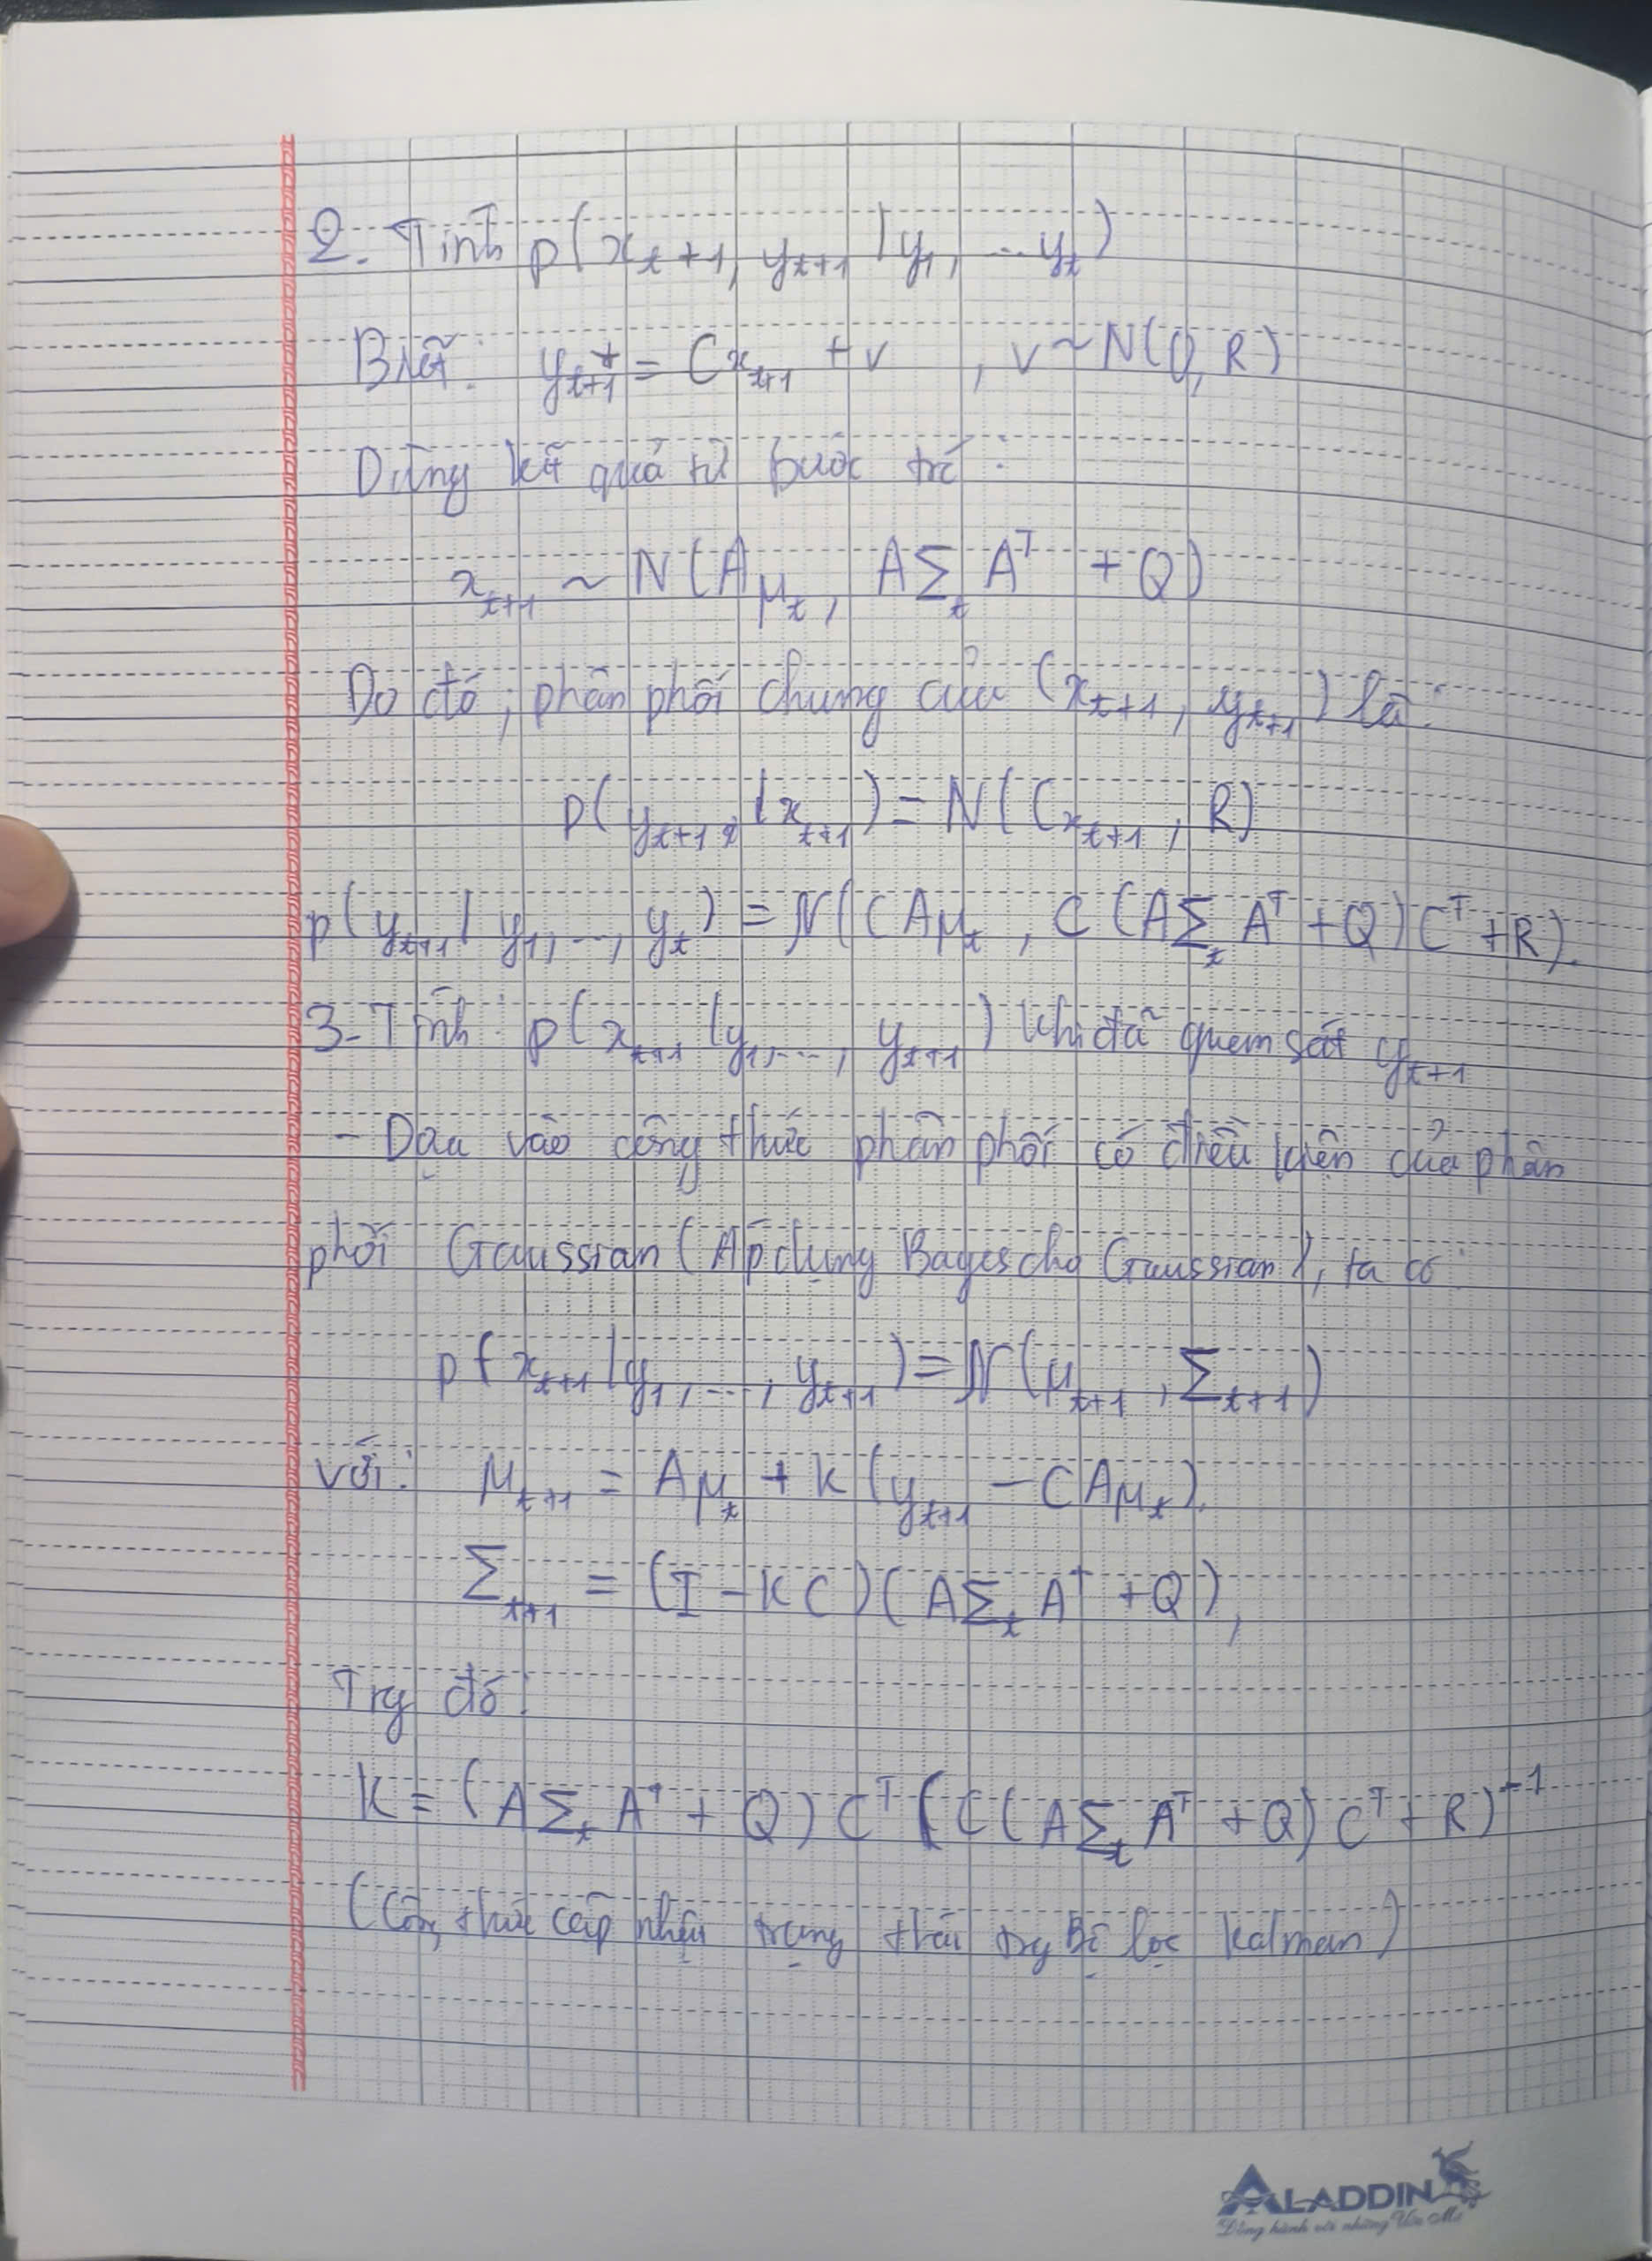 2. Tính p(x_{t+1}, y_{t+1} | y_1, ... y_t)
Biết: y_{t+1} = Cx_{t+1} + v , v ~ N(0, R)
Dùng kết quả từ bước trc:
x_{t+1} ~ N(Aμ_t, AΣ_t A^T + Q)
Do đó, phân phối chung của (x_{t+1}, y_{t+1}) là:
p(y_{t+1} | x_{t+1}) = N(Cx_{t+1}, R)
p(y_{t+1} | y_1, ..., y_t) = N(CAμ_t, C(AΣ_t A^T + Q)C^T + R).
3. Tính: p(x_{t+1} | y_1, ..., y_{t+1}) khi đã quan sát y_{t+1}
- Dựa vào công thức phân phối có điều kiện của phân
phối Gaussian (Áp dụng Bayes cho Gaussian), ta có:
p(x_{t+1} | y_1, ..., y_{t+1}) = N(μ_{t+1}, Σ_{t+1})
với: μ_{t+1} = Aμ_t + K(y_{t+1} - CAμ_t).
Σ_{t+1} = (I - KC)(AΣ_t A^T + Q),
Trg đó:
K = (AΣ_t A^T + Q)C^T (C(AΣ_t A^T + Q)C^T + R)^{-1}
(Công thức cập nhật trạng thái trg Bộ lọc Kalman)
ALADDIN
Đồng hành với những Ước Mơ